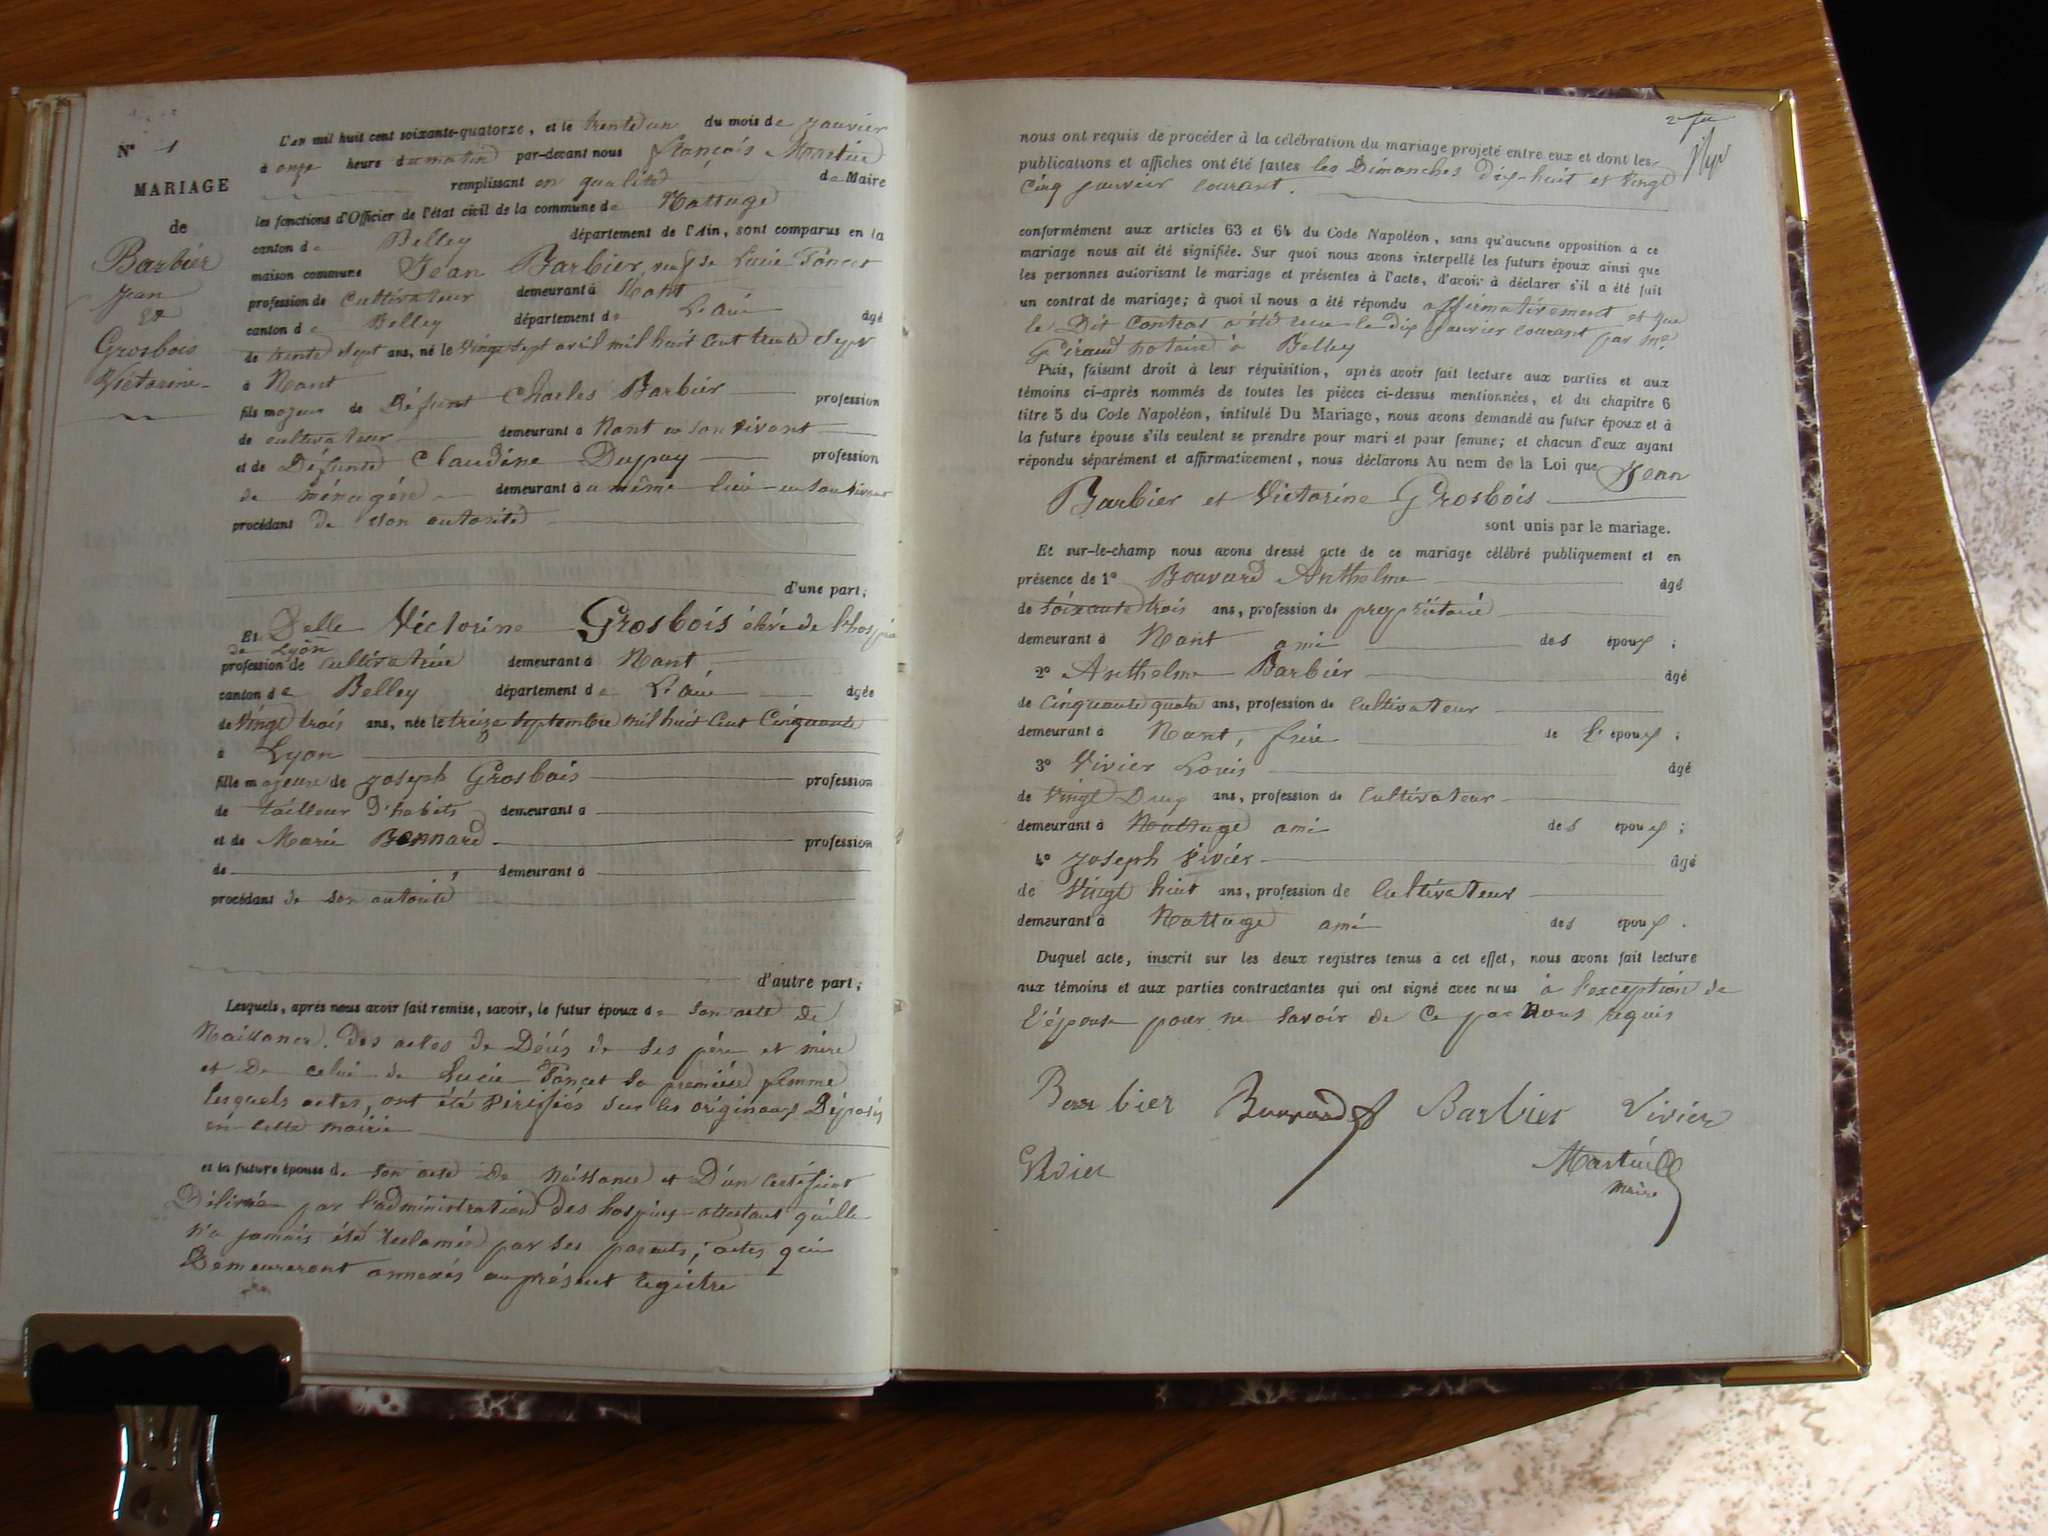 N° 1
MARIAGE
de
Barbier
Jean
et
Grosbois
Victorine
L'an mil huit cent soixante-quatorze, et le trente un du mois de janvier
à onze heure du matin par-devant nous François Martin
remplissant en qualité de Maire
les fonctions d'Officier de l'état civil de la commune de Nattage
canton de Belley département de l'Ain, sont comparus en la
maison commune Jean Barbier, veuf de Lucie Poncet
profession de cultivateur demeurant à Nant
canton de Belley département de L'ain âgé
de trente sept ans, né le vingt sept avril mil huit cent trente sept
à Nant
fils majeur de Défunt Charles Barbier profession
de cultivateur demeurant à Nant en son vivant
et de Défunte Claudine Dupuy profession
de ménagère demeurant au même lieu en son vivant
procédant de son autorité
d'une part;
Et Delle Victorine Grosbois élève de l'hospice
de Lyon
profession de cultivatrice demeurant à Nant
canton de Belley département de L'ain âgée
de vingt trois ans, née le treize septembre mil huit cent cinquante
à Lyon
fille majeure de Joseph Grosbois profession
de tailleur d'habits demeurant à
et de Marie Bonnard profession
de demeurant à
procédant de son autorité
d'autre part;
Lesquels, après nous avoir fait remise, savoir, le futur époux de son acte de
Naissance. Des actes de Décès de ses père et mère
et De celui de Lucie Poncet sa première femme
lesquels actes, ont été vérifiés sur les originaux Déposés
en cette mairie
et la future épouse de son acte de Naissance et D'un certificat
Délivré par l'administration Des hospices attestant qu'elle
n'a jamais été réclamée par ses parents; actes qui
Demeureront annexés au présent registre
nous ont requis de procéder à la célébration du mariage projeté entre eux et dont les
publications et affiches ont été faites les Dimanches dix-huit et vingt
cinq janvier courant.
conformément aux articles 63 et 64 du Code Napoléon, sans qu'aucune opposition à ce
mariage nous ait été signifiée. Sur quoi nous avons interpellé les futurs époux ainsi que
les personnes autorisant le mariage et présentes à l'acte, d'avoir à déclarer s'il a été fait
un contrat de mariage; à quoi il nous a été répondu affirmativement et que
le Dit Contrat a été reçu le dix janvier courant par me
Giraud notaire à Belley
Puis, faisant droit à leur réquisition, après avoir fait lecture aux parties et aux
témoins ci-après nommés de toutes les pièces ci-dessus mentionnées, et du chapitre 6
titre 5 du Code Napoléon, intitulé Du Mariage, nous avons demandé au futur époux et à
la future épouse s'ils veulent se prendre pour mari et pour femme; et chacun d'eux ayant
répondu séparément et affirmativement, nous déclarons Au nom de la Loi que Jean
Barbier et Victorine Grosbois
sont unis par le mariage.
Et sur-le-champ nous avons dressé acte de ce mariage célébré publiquement et en
présence de 1° Bouvard Anthelme âgé
de soixante trois ans, profession de propriétaire
demeurant à Nant ami des époux;
2° Anthelme Barbier âgé
de cinquante quatre ans, profession de cultivateur
demeurant à Nant, frère de l'époux;
3° Vivier Louis âgé
de vingt Deux ans, profession de cultivateur
demeurant à Nattage ami des époux;
4° Joseph Vivier âgé
de vingt huit ans, profession de cultivateur
demeurant à Nattage ami des époux.
Duquel acte, inscrit sur les deux registres tenus à cet effet, nous avons fait lecture
aux témoins et aux parties contractantes qui ont signé avec nous à l'exception de
l'épouse pour ne savoir de ce par Nous requis
Barbier Bouvard Barbier Vivier
Vivier Martin
maire